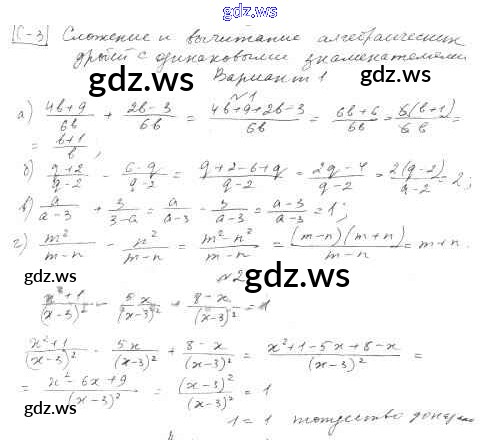 gdz.ws
C-3 Сложение и вычитание алгебраических
дробей с одинаковыми знаменателями
gdz.ws
Вариант 1
№1
а) (4b+9)/(6b) + (2b-3)/(6b) = (4b+9+2b-3)/(6b) = (6b+6)/(6b) = 6(b+1)/(6b) =
= (b+1)/b ;
gdz.ws gdz.ws
б) (q+2)/(q-2) - (6-q)/(q-2) = (q+2-6+q)/(q-2) = (2q-4)/(q-2) = 2(q-2)/(q-2) = 2;
в) a/(a-3) + 3/(3-a) = a/(a-3) - 3/(a-3) = (a-3)/(a-3) = 1;
г) m²/(m-n) - n²/(m-n) = (m²-n²)/(m-n) = (m-n)(m+n)/(m-n) = m+n.
gdz.ws gdz.ws
№2
(x²+1)/(x-3)² - 5x/(x-3)² + (8-x)/(x-3)² = 1
(x²+1)/(x-3)² - 5x/(x-3)² + (8-x)/(x-3)² = (x²+1-5x+8-x)/(x-3)² =
= (x²-6x+9)/(x-3)² = (x-3)²/(x-3)² = 1
gdz.ws gdz.ws
1 = 1 тождество